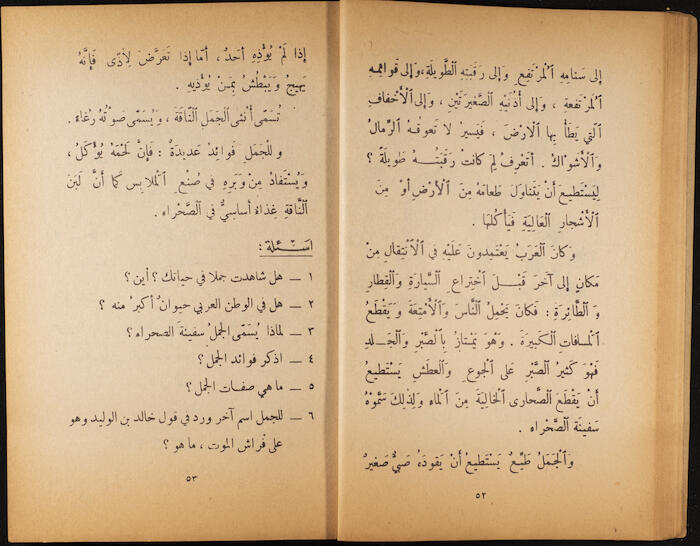 إِلى سَنامِهِ ٱلْمُرْتَفِعِ وَإِلى رَقَبَتِهِ ٱلطَّوِيلَةِ، وَإِلى قَوائِمِهِ
ٱلْمُرْتَفِعَةِ ، وَإِلى أُذُنَيْهِ ٱلصَّغيرَتَيْنِ ، وَإِلى ٱلْأَخْفافِ
ٱلَّتي يَطَأُ بِها ٱلْأَرْضَ ، فَيَسيرُ لا تَعوقُهُ ٱلرِّمالُ
وَٱلْأَشْواكُ . أَتَعْرِفُ لِمَ كانَتْ رَقَبَتُهُ طَويلَةً ؟
لِيَسْتَطيعَ أَنْ يَتَناوَلَ طَعامَهُ مِنَ ٱلْأَرْضِ أَوْ مِنَ
ٱلْأَشْجارِ ٱلْعالِيَةِ فَيَأْكُلَها .
وَكانَ ٱلْعَرَبُ يَعْتَمِدونَ عَلَيْهِ في ٱلْٱنْتِقالِ مِنْ
مَكانٍ إِلى آخَرَ قَبْلَ ٱخْتِراعِ ٱلسَّيارَةِ وَٱلْقِطارِ
وَٱلطَّائِرَةِ : فَكانَ يَحْمِلُ ٱلنَّاسَ وَٱلْأَمْتِعَةَ وَيَقْطَعُ
ٱلْمَسافاتِ ٱلْكَبيرَةَ . وَهْوَ يَمْتازُ بِٱلصَّبْرِ وَٱلْجَلَدِ
فَهْوَ كَثيرُ ٱلصَّبْرِ عَلى ٱلْجوعِ وَٱلْعَطَشِ يَسْتَطيعُ
أَنْ يَقْطَعَ ٱلصَّحارى ٱلْخالِيَةَ مِنَ ٱلْماءِ وَلِذلِكَ سَمَّوْهُ
سَفينَةَ ٱلصَّحْراءِ .
وَٱلْجَمَلُ طَيِّعٌ يَسْتَطيعُ أَنْ يَقودَهُ صَبِيٌّ صَغيرٌ
٥٢
إِذا لَمْ يُؤْذِهِ أَحَدٌ ، أَمَّا إِذا تَعَرَّضَ لِأَذًى فَإِنَّهُ
يَهيجُ وَيَبْطُشُ بِمَنْ يُؤْذيهِ .
تُسَمّى أُنْثى ٱلْجَمَلِ ٱلنَّاقَةَ ، وَيُسَمّى صَوْتُهُ رُغاءً .
وَلِلْجَمَلِ فَوائِدُ عَديدَةٌ : فَإِنَّ لَحْمَهُ يُؤْكَلُ ،
وَيُسْتَفادُ مِنْ وَبَرِهِ في صُنْعِ ٱلْمَلابِسِ كَما أَنَّ لَبَنَ
ٱلنَّاقَةِ غِذاءٌ أَساسِيٌّ في ٱلصَّحْراءِ .
اسئلة :
١ – هل شاهدت جملا في حياتك ؟ أين ؟
٢ – هل في الوطن العربي حيوانٌ أكبرُ منه ؟
٣ – لماذا يُسَمّى الجملُ سفينةَ الصحراء ؟
٤ – اذكر فوائد الجمل ؟
٥ – ما هي صفات الجمل ؟
٦ – للجمل اسم آخر ورد في قول خالد بن الوليد وهو
على فراش الموت ، ما هو ؟
٥٣